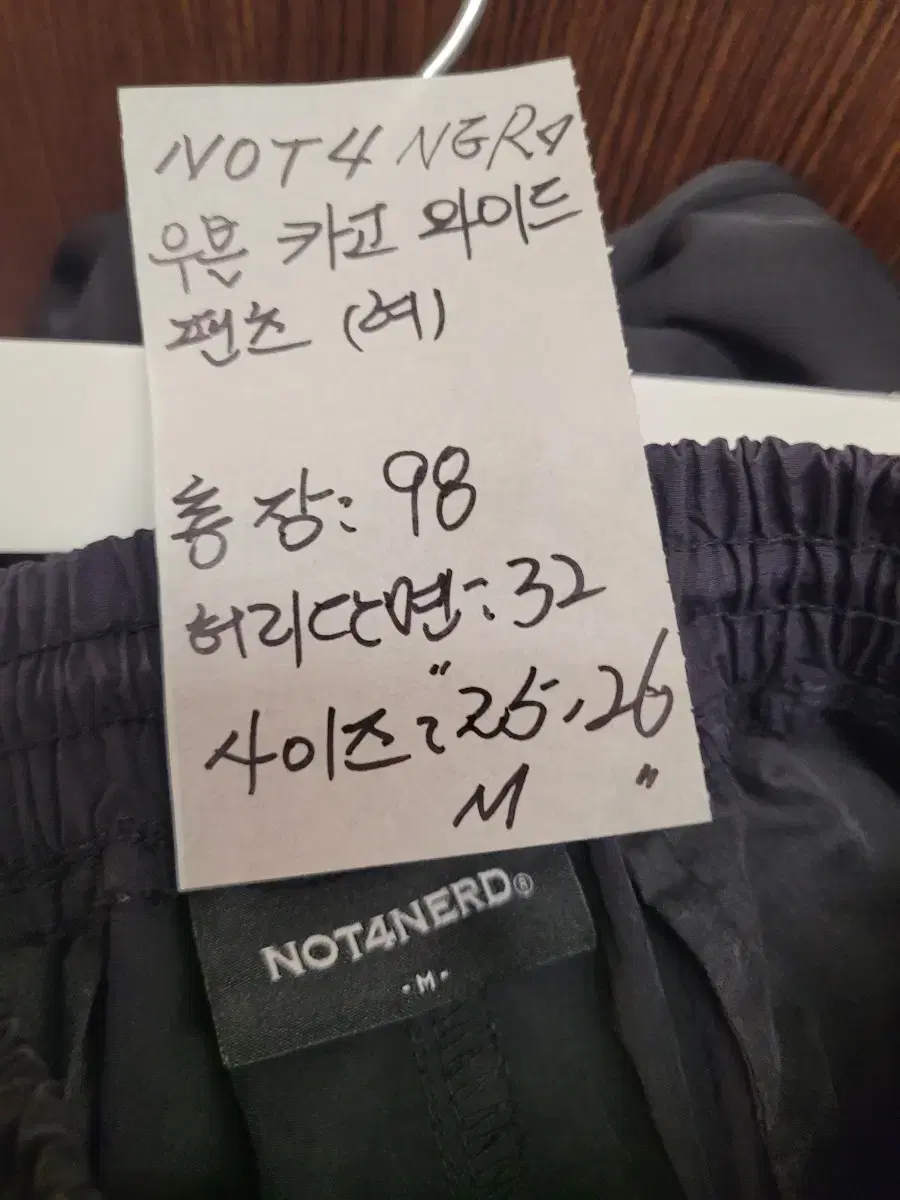 NOT4 NERD
우븐 카고 와이드
팬츠 (여)
총장: 98
허리단면: 32
사이즈: "25, 26
M "
NOT4NERD®
·M·